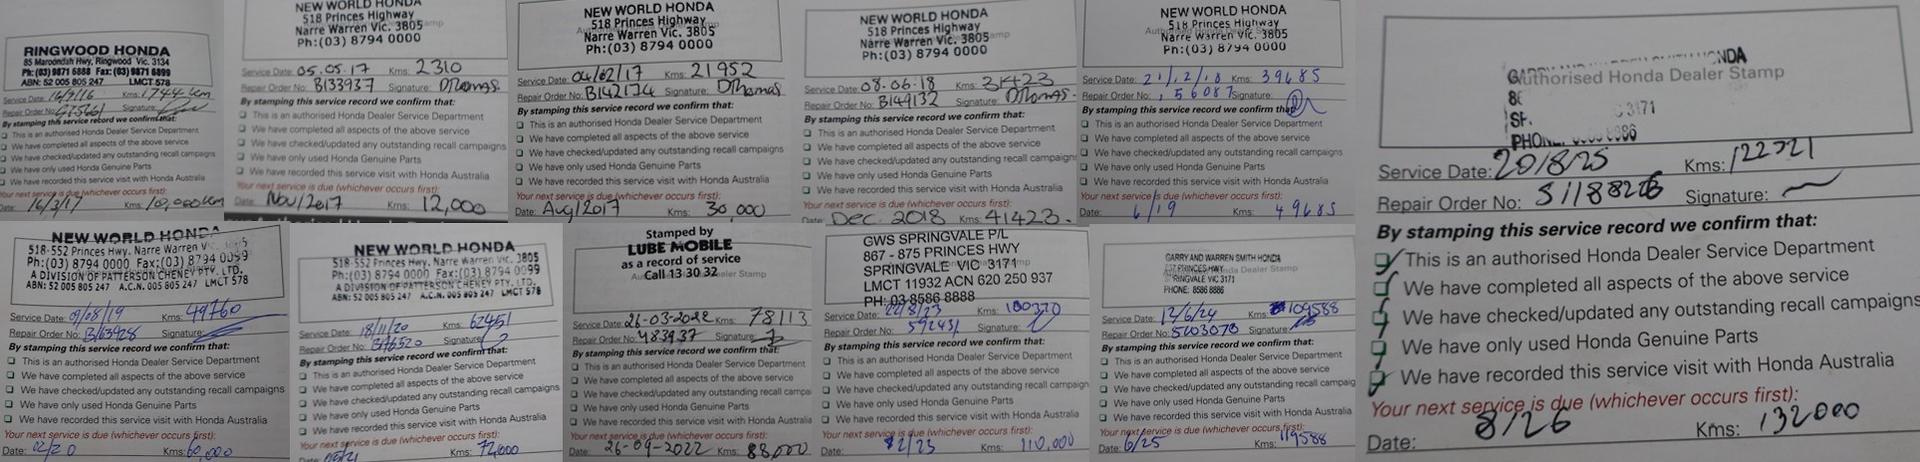 RINGWOOD HONDA
85 Maroondah Hwy, Ringwood Vic. 3134
Ph: (03) 9871 6888 Fax: (03) 9871 6899
ABN: 52 005 805 247 LMCT 578
Service Date: 16/9/16 Kms: 1744 km
Repair Order No: Signature:
By stamping this service record we confirm that:
This is an authorised Honda Dealer Service Department
We have completed all aspects of the above service
We have checked/updated any outstanding recall campaigns
We have only used Honda Genuine Parts
We have recorded this service visit with Honda Australia
Your next service is due (whichever occurs first):
Date: 16/3/17 Kms: 10,000km
NEW WORLD HONDA
518 Princes Highway
Narre Warren Vic. 3805
Ph: (03) 8794 0000
Service Date: 05.05.17 Kms: 2310
Repair Order No: B133937 Signature: DThomas
By stamping this service record we confirm that:
This is an authorised Honda Dealer Service Department
We have completed all aspects of the above service
We have checked/updated any outstanding recall campaigns
We have only used Honda Genuine Parts
We have recorded this service visit with Honda Australia
Your next service is due (whichever occurs first):
Date: Nov/2017 Kms: 12,000
NEW WORLD HONDA
518 Princes Highway
Narre Warren Vic. 3805
Ph: (03) 8794 0000
Service Date: 04/02/17 Kms: 21952
Repair Order No: B142174 Signature: DThomas
By stamping this service record we confirm that:
This is an authorised Honda Dealer Service Department
We have completed all aspects of the above service
We have checked/updated any outstanding recall campaigns
We have only used Honda Genuine Parts
We have recorded this service visit with Honda Australia
Your next service is due (whichever occurs first):
Date: Aug/2017 Kms: 30,000
NEW WORLD HONDA
518 Princes Highway
Narre Warren Vic. 3805
Ph: (03) 8794 0000
Service Date: 08.06.18 Kms: 31423
Repair Order No: B149132 Signature: DThomas
By stamping this service record we confirm that:
This is an authorised Honda Dealer Service Department
We have completed all aspects of the above service
We have checked/updated any outstanding recall campaigns
We have only used Honda Genuine Parts
We have recorded this service visit with Honda Australia
Your next service is due (whichever occurs first):
Date: Dec. 2018 Kms: 41423.
NEW WORLD HONDA
518 Princes Highway
Narre Warren Vic. 3805
Ph: (03) 8794 0000
Service Date: 21/12/18 Kms: 39685
Repair Order No: 156087 Signature:
By stamping this service record we confirm that:
This is an authorised Honda Dealer Service Department
We have completed all aspects of the above service
We have checked/updated any outstanding recall campaigns
We have only used Honda Genuine Parts
We have recorded this service visit with Honda Australia
Your next service is due (whichever occurs first):
Date: 6/19 Kms: 49685
NEW WORLD HONDA
518-552 Princes Hwy. Narre Warren
Ph: (03) 8794 0000 Fax: (03) 8794 0099
A DIVISION OF PATTERSON CHENEY PTY. LTD.
ABN: 52 005 805 247 A.C.N. 005 805 247 LMCT 578
Service Date: 09/08/19 Kms: 49760
Repair Order No: B163928 Signature:
By stamping this service record we confirm that:
This is an authorised Honda Dealer Service Department
We have completed all aspects of the above service
We have checked/updated any outstanding recall campaigns
We have only used Honda Genuine Parts
We have recorded this service visit with Honda Australia
Your next service is due (whichever occurs first):
Date: 02/20 Kms: 60,000
NEW WORLD HONDA
518-552 Princes Hwy. Narre Warren Vic. 3805
Ph: (03) 8794 0000 Fax: (03) 8794 0099
A DIVISION OF PATTERSON CHENEY PTY. LTD.
ABN: 52 005 805 247 A.C.N. 005 805 247 LMCT 578
Service Date: 18/11/20 Kms: 62451
Repair Order No: B176520 Signature:
By stamping this service record we confirm that:
This is an authorised Honda Dealer Service Department
We have completed all aspects of the above service
We have checked/updated any outstanding recall campaigns
We have only used Honda Genuine Parts
We have recorded this service visit with Honda Australia
Your next service is due (whichever occurs first):
Date: Kms: 72,000
Stamped by
LUBE MOBILE
as a record of service
Call 13 30 32
Service Date: 26-03-2022 Kms: 78113
Repair Order No: 483937 Signature:
By stamping this service record we confirm that:
This is an authorised Honda Dealer Service Department
We have completed all aspects of the above service
We have checked/updated any outstanding recall campaigns
We have only used Honda Genuine Parts
We have recorded this service visit with Honda Australia
Your next service is due (whichever occurs first):
Date: 26-09-2022 Kms: 88,000
GWS SPRINGVALE P/L
867 - 875 PRINCES HWY
SPRINGVALE VIC 3171
LMCT 11932 ACN 620 250 937
PH: 03 8586 8888
Service Date: 22/8/23 Kms: 100370
Repair Order No: 592431 Signature:
By stamping this service record we confirm that:
This is an authorised Honda Dealer Service Department
We have completed all aspects of the above service
We have checked/updated any outstanding recall campaigns
We have only used Honda Genuine Parts
We have recorded this service visit with Honda Australia
Your next service is due (whichever occurs first):
Date: 2/23 Kms: 110,000
GARRY AND WARREN SMITH HONDA
PRINCES HWY
SPRINGVALE VIC 3171
PHONE: 8586 8886
Service Date: 12/6/24 Kms: 109588
Repair Order No: 5603070 Signature:
By stamping this service record we confirm that:
This is an authorised Honda Dealer Service Department
We have completed all aspects of the above service
We have checked/updated any outstanding recall campaigns
We have only used Honda Genuine Parts
We have recorded this service visit with Honda Australia
Your next service is due (whichever occurs first):
Date: 6/25 Kms: 119588
Authorised Honda Dealer Stamp
3171
Service Date: 20/8/25 Kms: 122321
Repair Order No: S118826 Signature:
By stamping this service record we confirm that:
This is an authorised Honda Dealer Service Department
We have completed all aspects of the above service
We have checked/updated any outstanding recall campaigns
We have only used Honda Genuine Parts
We have recorded this service visit with Honda Australia
Your next service is due (whichever occurs first):
Date: 8/26 Kms: 132000